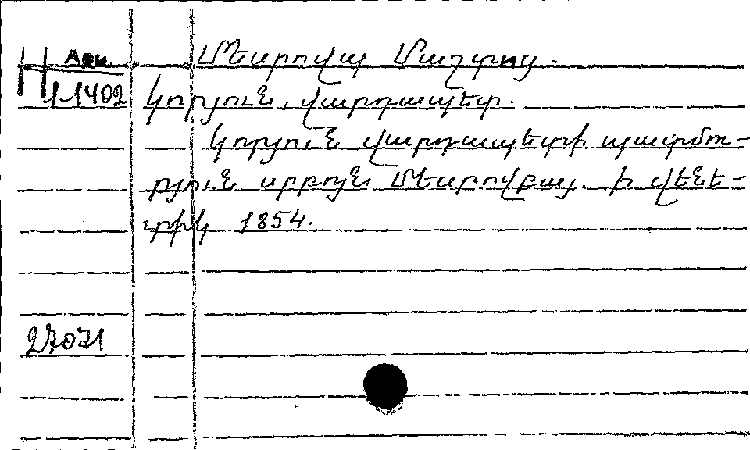 Արև. Մեսրովպ Մաշտոց.
11402 Կորյուն, վարդապետ.
Կորյուն վարդապետի պատմու-
թյուն սրբոյն Մեսրովբայ. Ի վենե-
տիկ 1854.
27071